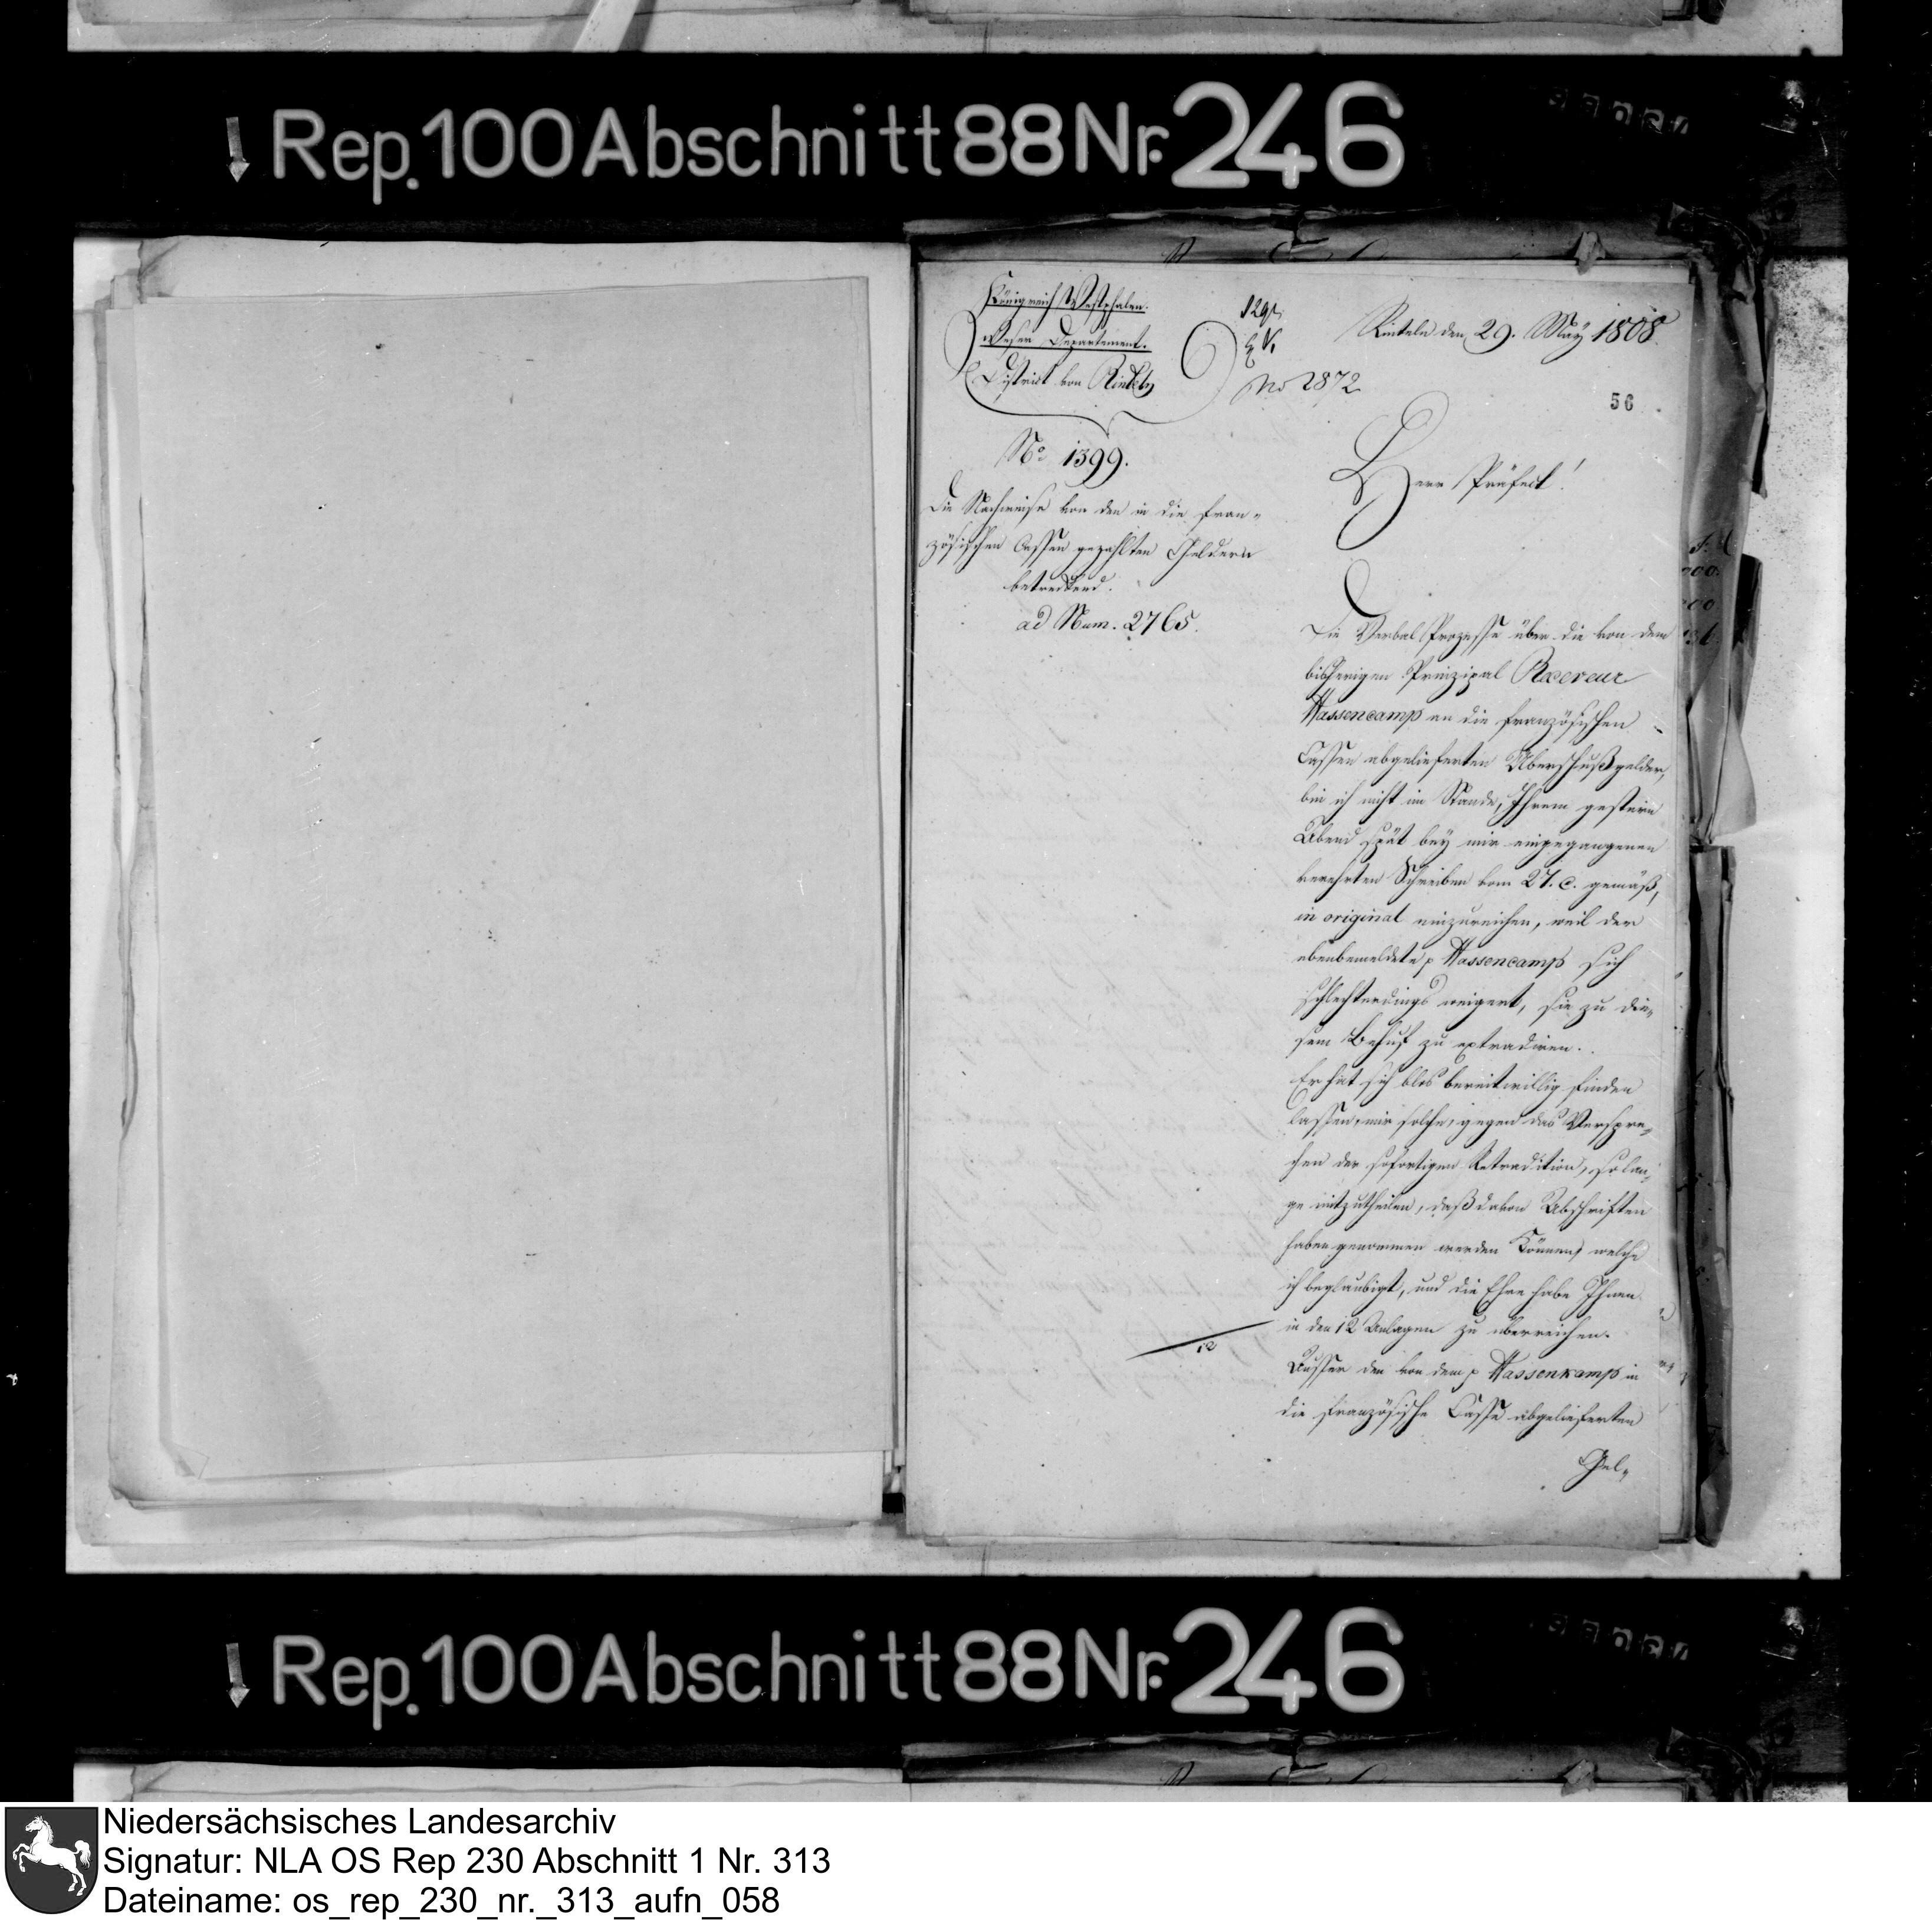 Rep. 100 Abschnitt 88 Nr. 246
Königreich Westphalen.
Weser Departement.
District von Rinteln
No 2872
Rinteln den 29. May 1808.
56
No 1399.
Die Nachweise von den in die fran-
zösischen Cassen gezahlten Geldern
betreffend.
ad Num. 2765.
Herr Präfect!
Die Verbal Prozesse über die von dem
bisherigen Prinzipal Receveur
Wassencamp an die französischen
Cassen abgelieferten Überschußgelder,
bin ich nicht im Stande, Ihrem gestern
Abend spät bey mir eingegangenen
verehrten Schreiben vom 27. c. gemäß,
in original einzureichen, weil der
ebenbemeldete p Wassencamp sich
schlechterdings weigert, sie zu die-
sem Behuf zu extradiren.
Er hat sich blos bereitwillig finden
lassen, mir solche, gegen das Verspre-
chen der sofortigen Retradition, solan-
ge mitzutheilen, daß davon Abschriften
haben genommen werden können, welche
ich beglaubigt, und die Ehre habe Ihnen
in den 12 Anlagen zu überreichen.
12
Ausser den von dem p Wassenkamp in
die französische Casse abgelieferten
Gel-
Rep. 100 Abschnitt 88 Nr. 246
Niedersächsisches Landesarchiv
Signatur: NLA OS Rep 230 Abschnitt 1 Nr. 313
Dateiname: os_rep_230_nr._313_aufn_058